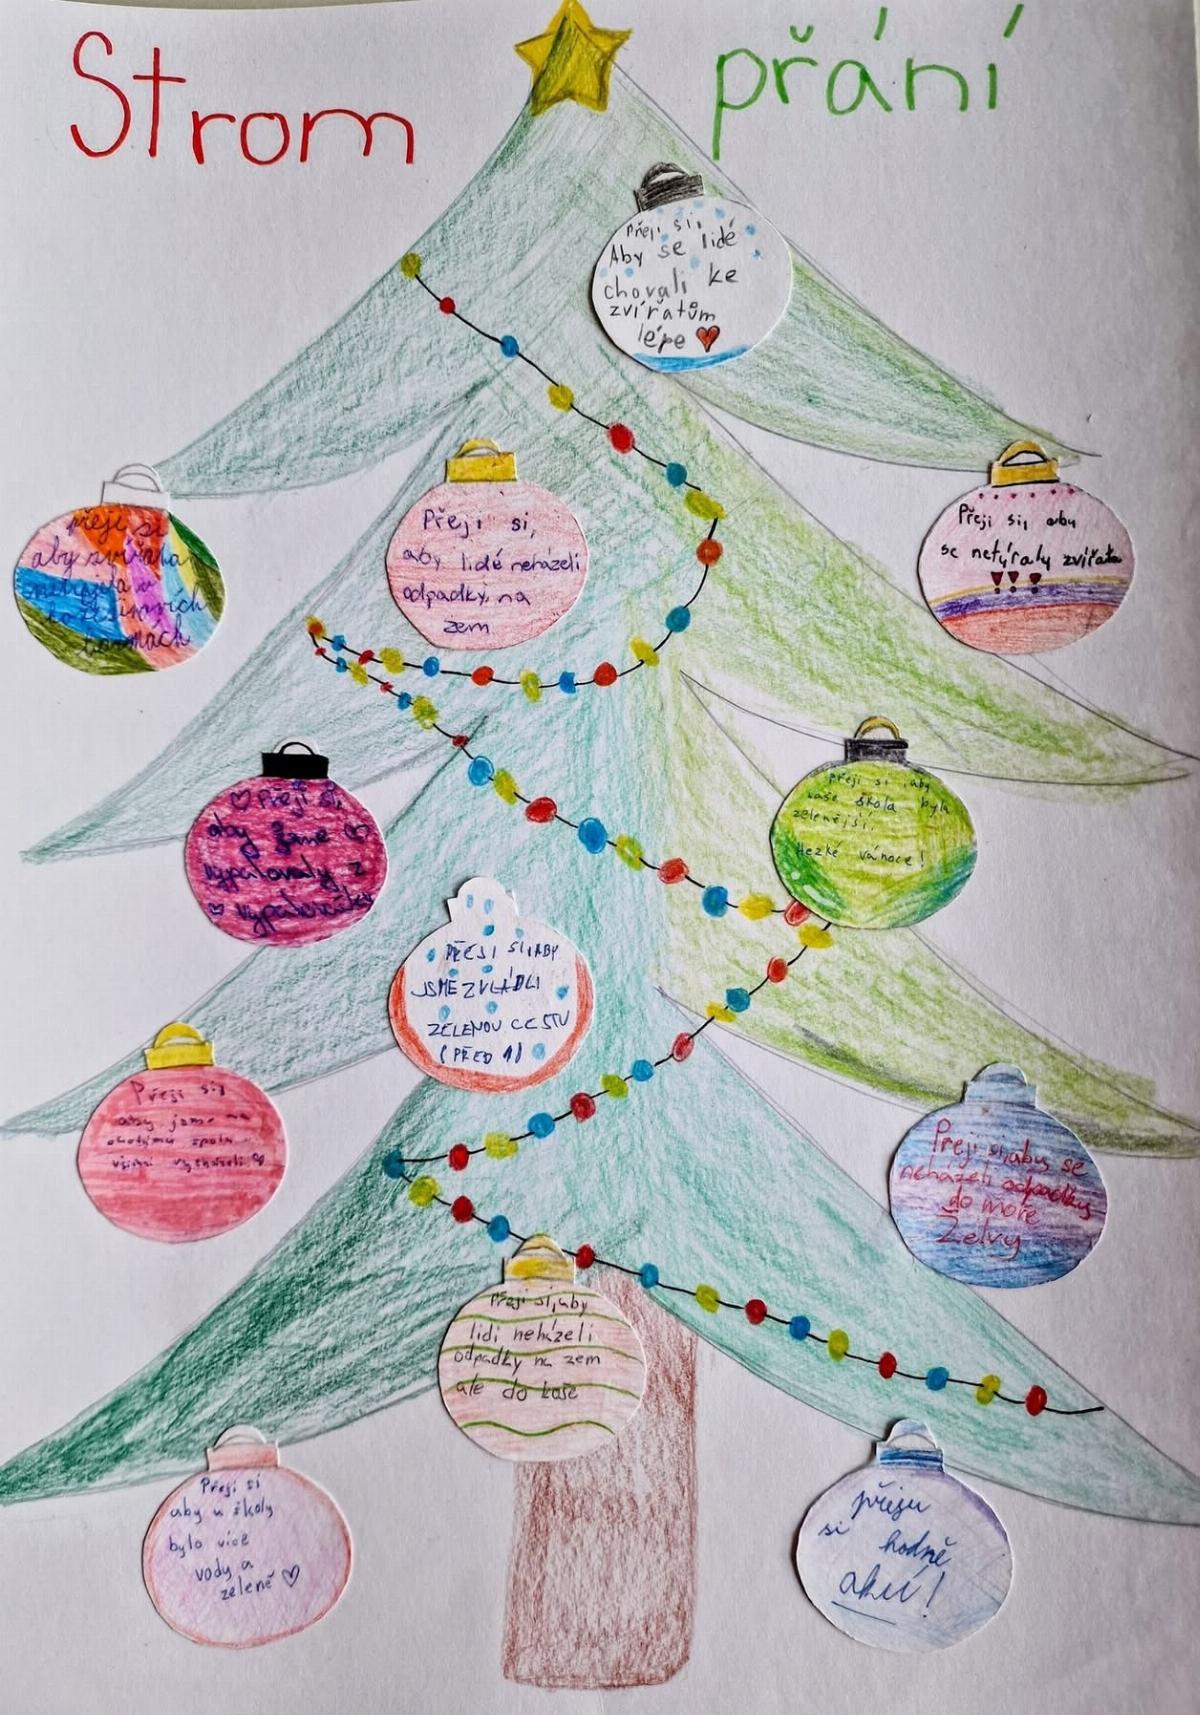 Strom přání
Přeji si,
Aby se lidé
chovali ke
zvířatům
lépe
přeji si
aby zvířata
Přeji si,
aby lidé neházeli
odpadky na
zem
Přeji si, aby
se netýraly zvířata
!!!
Přeji si,
aby jsme
vypalovaly z
vypalovačky
přeji si, aby
naše škola byla
zelenější.
Hezké vánoce!
PŘEJI SI, ABY
JSME ZVLÁDLI
ZELENOU CESTU
(PŘED 1)
Přeji si,
aby jsme na
spolu
všichni vycházeli
Přeji si, aby se
neházeli odpadky
do moře
Želvy
Přeji si, aby
lidi neházeli
odpadky na zem
ale do koše
Přeji si
aby u školy
bylo více
vody a
zeleně
přeju
si hodně
akcí!